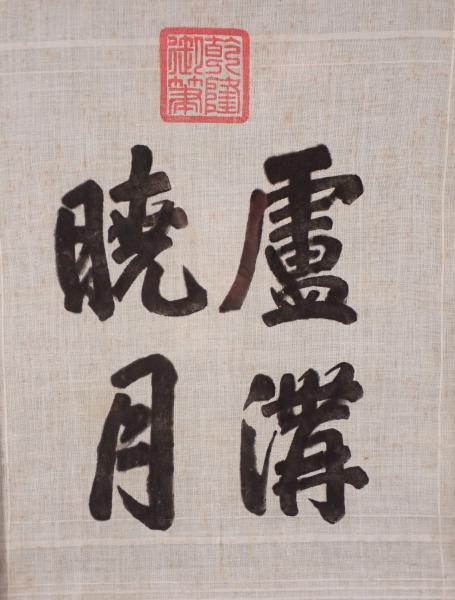 乾隆
御筆
盧溝
曉月